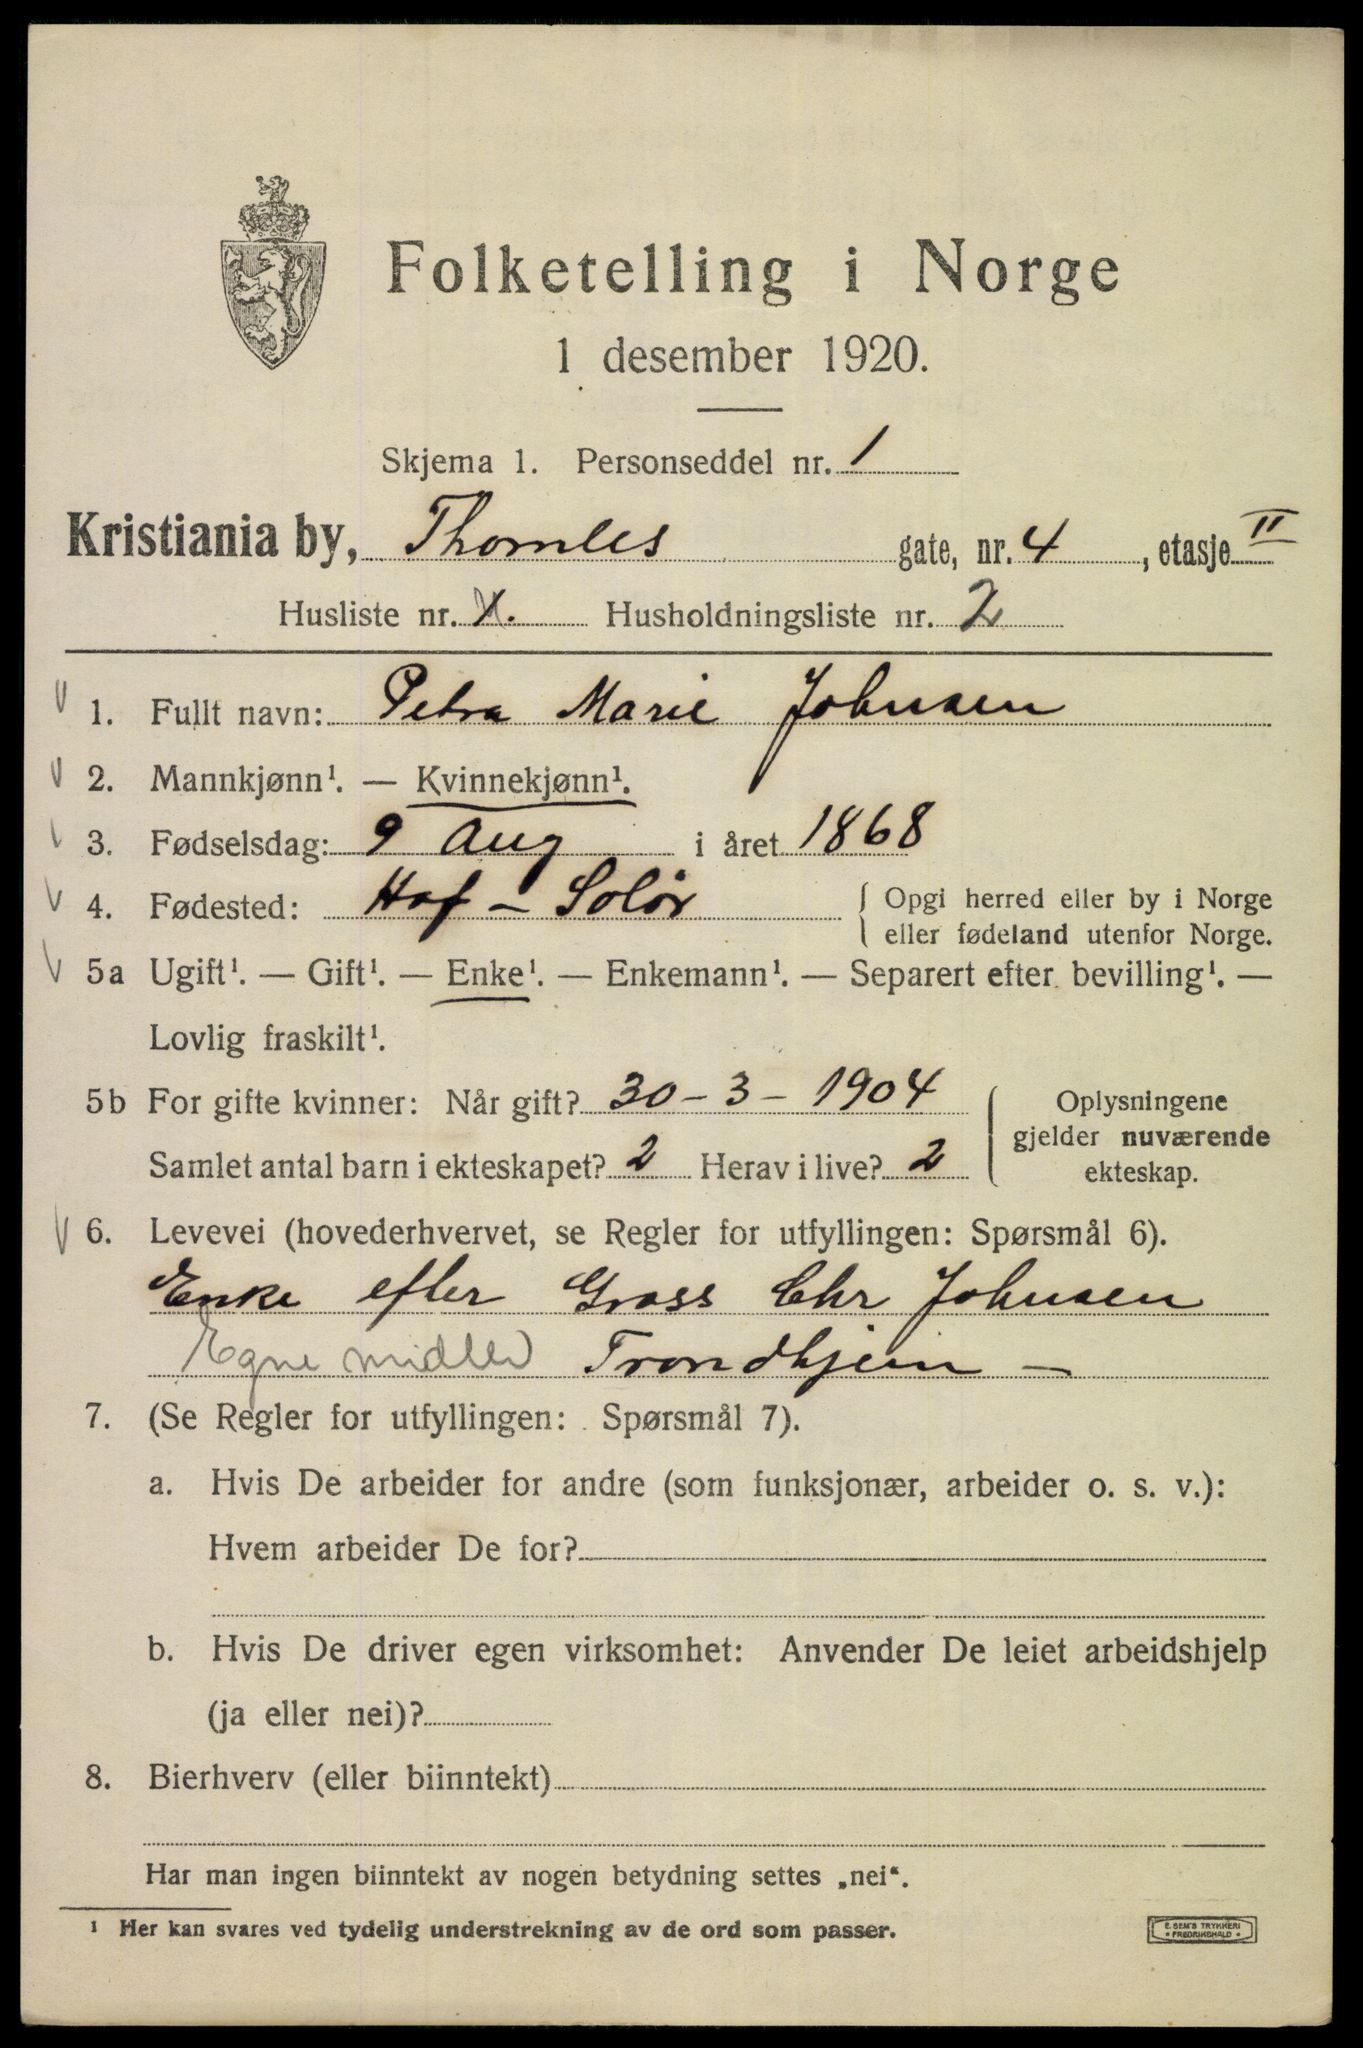 Folketelling i Norge
1 desember 1920.
Skjema 1. Personseddel nr. 1
Kristiania by, Thomles gate, nr. 4, etasje II
Husliste nr. X. Husholdningsliste nr. 2
1. Fullt navn: Petra Marie Johnsen
2. Mannkjønn¹. — Kvinnekjønn¹.
3. Fødselsdag: 9 Aug i året 1868
4. Fødested: Hof - Solør { Opgi herred eller by i Norge
eller fødeland utenfor Norge.
5a Ugift¹. — Gift¹. — Enke¹. — Enkemann¹. — Separert efter bevilling¹. —
Lovlig fraskilt¹.
5b For gifte kvinner: Når gift? 30-3-1904
Samlet antal barn i ekteskapet? 2 Herav i live? 2
Oplysningene
gjelder nuværende
ekteskap.
6. Levevei (hovederhvervet, se Regler for utfyllingen: Spørsmål 6).
Enke efter Gross Chr Johnsen
Egne midler Trondhjem -
7. (Se Regler for utfyllingen: Spørsmål 7).
a. Hvis De arbeider for andre (som funksjonær, arbeider o. s. v.):
Hvem arbeider De for?
b. Hvis De driver egen virksomhet: Anvender De leiet arbeidshjelp
(ja eller nei)?
8. Bierhverv (eller biinntekt)
Har man ingen biinntekt av nogen betydning settes „nei“.
¹ Her kan svares ved tydelig understrekning av de ord som passer.
E. SEM'S TRYKKERI
• FREDRIKSHALD •